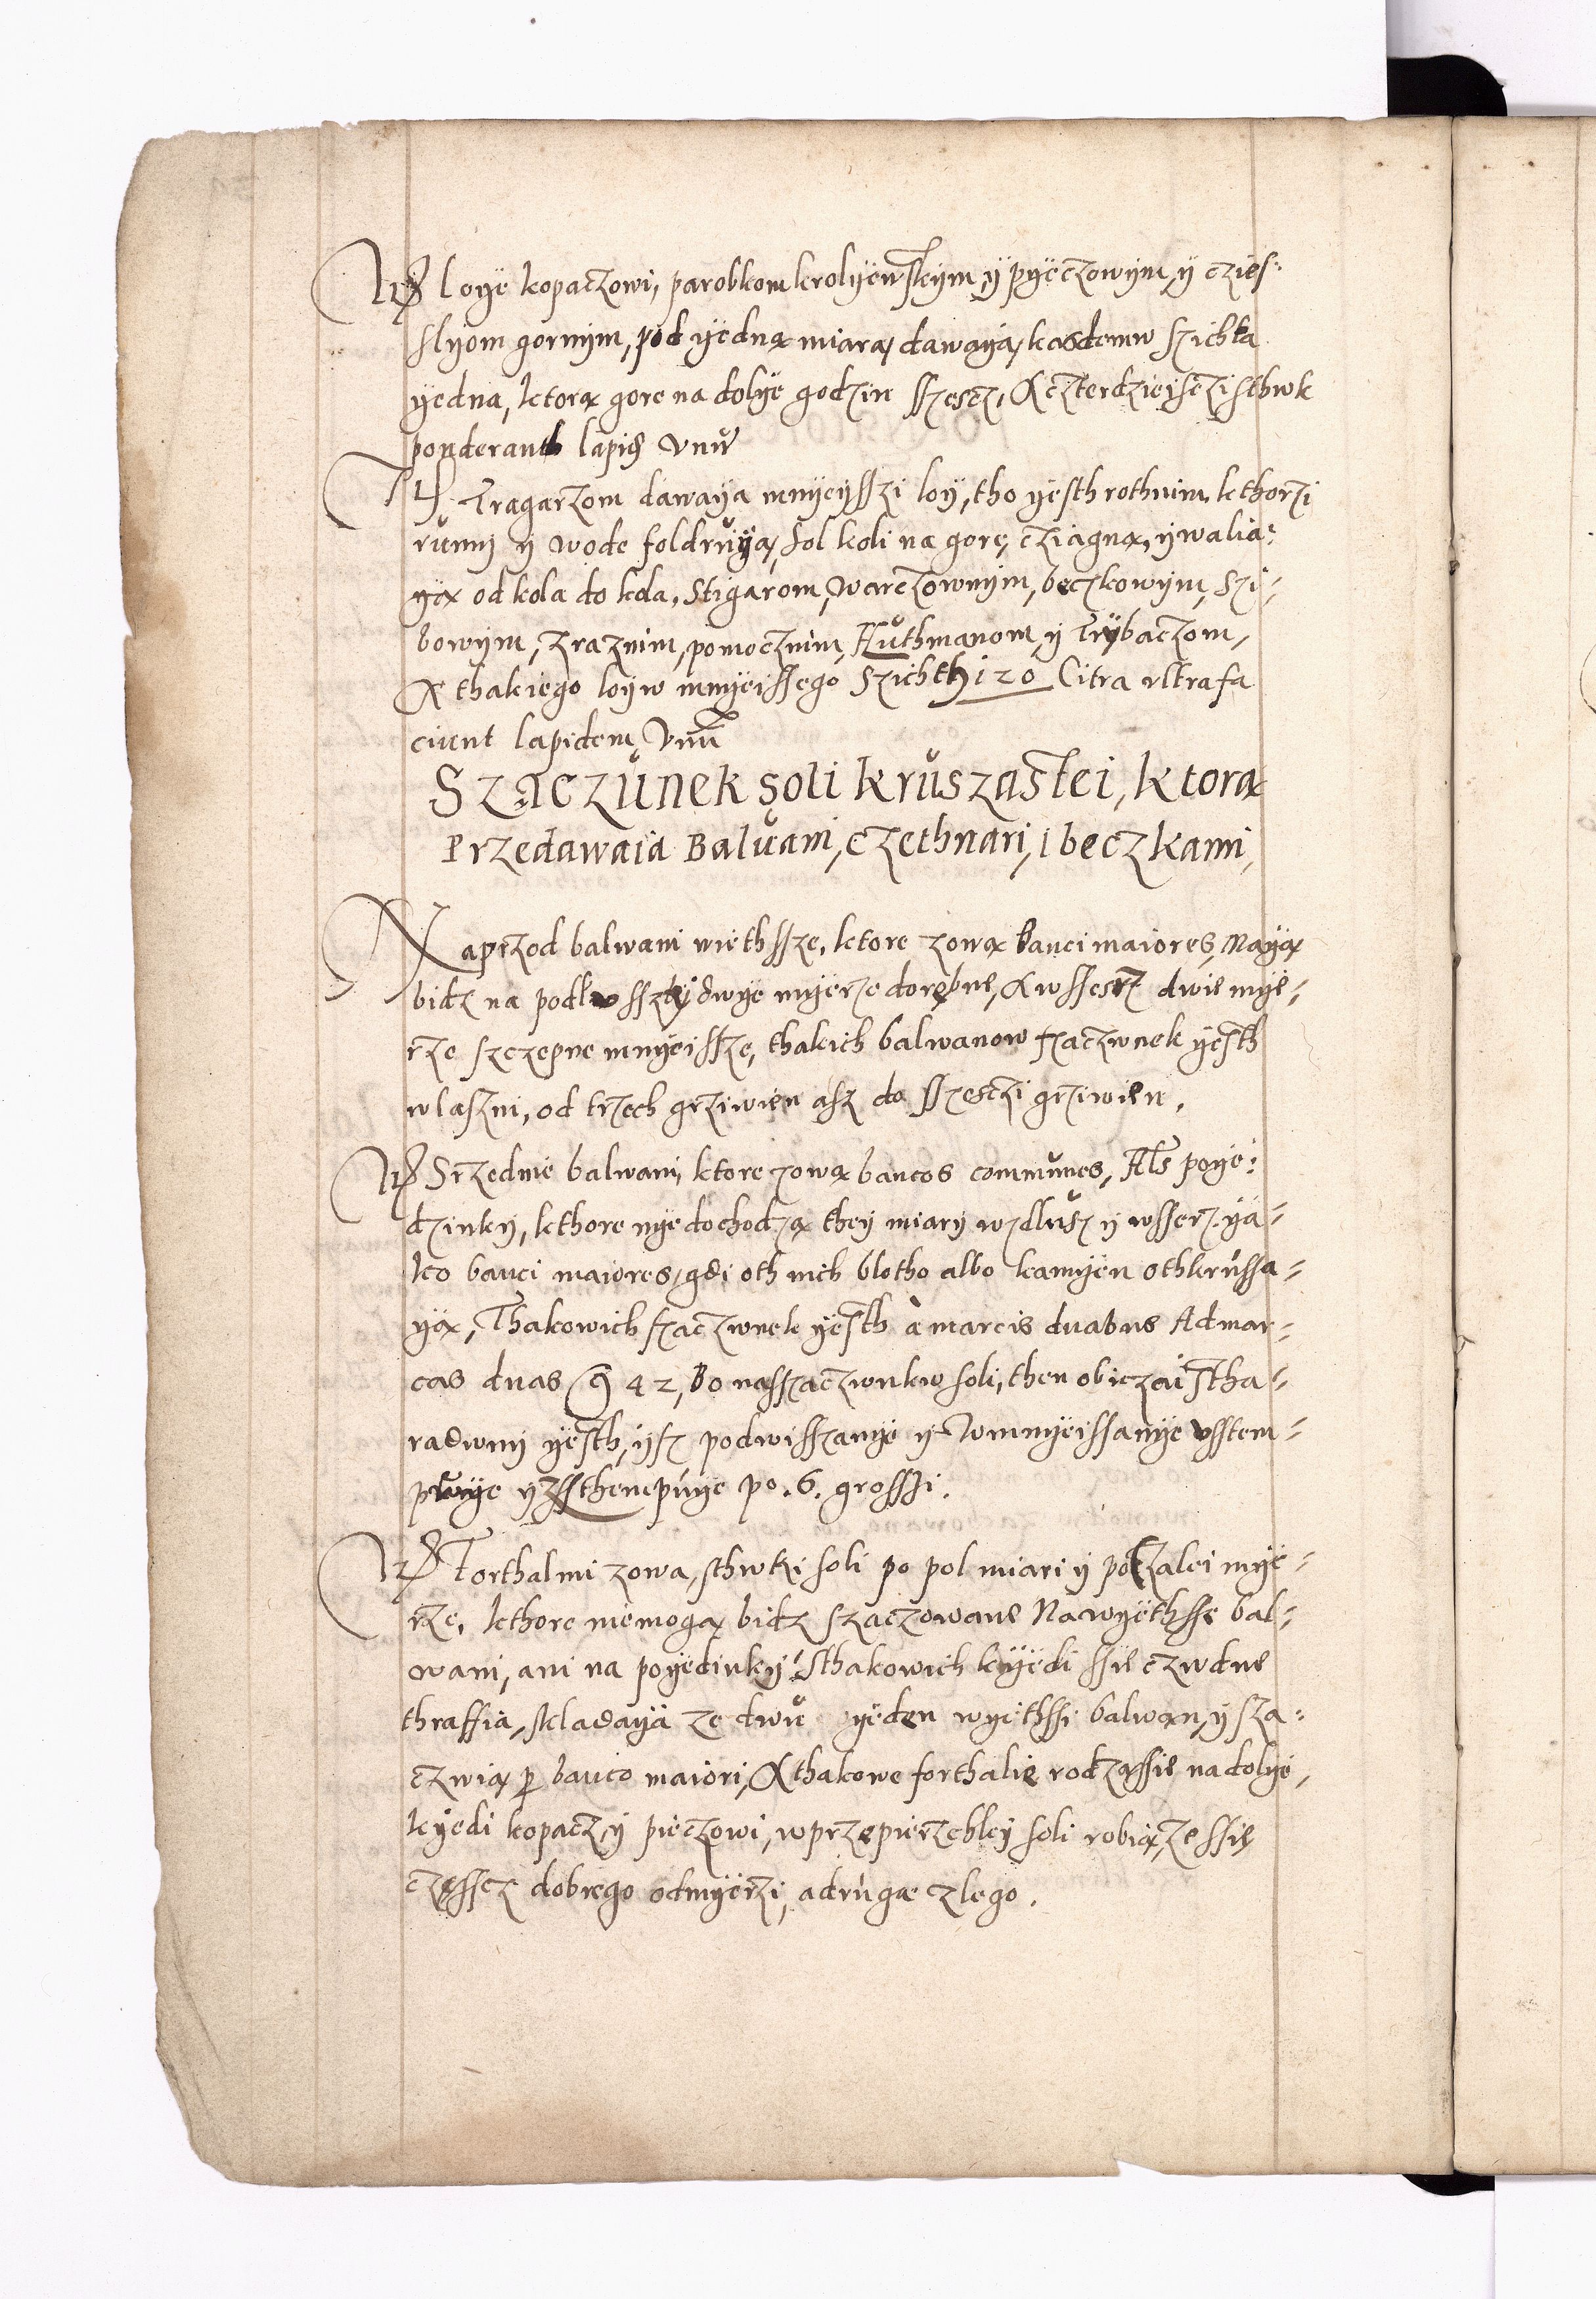 loye kopaczowi, parobkom krolyewskym, y pyeczowym, y czies=
slyom gornym, pod yedną miarą dawayą, kasdemu szichta
yedna, ktorą gore na dolye godzin sszescz, A czterdziesczi sthwk
ponderanth lapis vnu
Tragarzom dawaya mnyeysszi loy, tho yesth rothnim, kthorzi
runny y wode foldruyą, sol koli na gore, cziagną, y walia=
yą od kola do kola, Stigarom, warczownym, beczkowym, szi=
bowym, zraznim, pomocznim, Huthmanom, y Trybaczom,
A thakiego loyw mnyeissego Szichth 120 Citra ultra fa
ciunt lapidem vnu
Szaczunek soli kruszastei, ktorą
Przedawaia Baluani, czethnari, i beczkami,
Naprzod balwani wiethssze, ktore zową banci maiores, Mayą
bidz na podlw sszky dwye myerze dorebne, A w ssesrz dwie mye=
rze szczepne mnyeissze, thakich balwanow szaczwnek yesth
wlaszni, od trzech grziwien asz do sszesczi grziwien.
Srzednie balwani, ktore zową bancos communes, Als poye=
dzinky, kthore nye dochodzą they miary wzdlusz y wsserz yá=
ko banci maiores, gdi oth nich blotho albo kamyen othkrussa=
yą, Thakowich szaczwnek yesth à marcis duabus Ad mar=
cas duas g 42, Bo na sszaczwnkw soli, then obiczai stha=
radwny yesth, ysz podwisszanye y wmnyeissanye vsstem=
pwye y zssthempuye po . 6 . grosszi.
Forthalmi zowa, sthwki soli po pol miari y po czalei mye=
rze, kthore niemogą bidz szaczowane Na wyethsse bal=
wani, ani na poyedinky. Sthakowich kyedi ssie czwdne
thraffia, skladaya ze dwu yeden wyethssi balwan, y sza=
czwią p banco maiori, A thakowe forthalie rodzą ssie na dolye,
kyedi kopacz y pieczowi, w przepierzchley soli robią, ze ssie
czessez dobrego odmyerzi, a druga zlego.